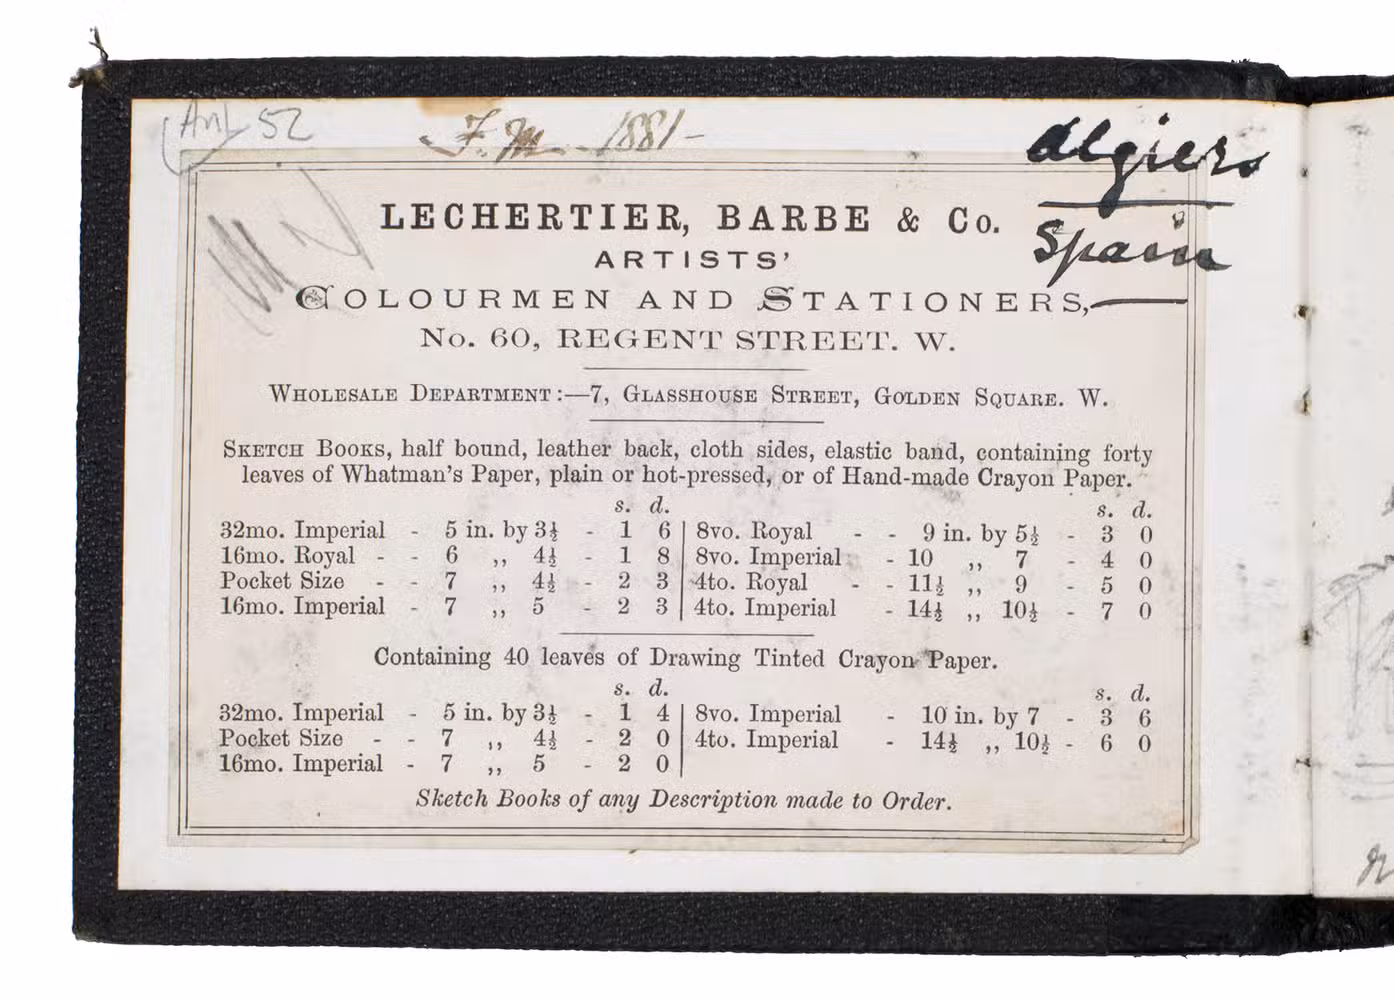 Ant 52
F.M. 1881-
Algiers
Spain
LECHERTIER, BARBE & Co.
ARTISTS'
COLOURMEN AND STATIONERS,
No. 60, REGENT STREET. W.
WHOLESALE DEPARTMENT:—7, GLASSHOUSE STREET, GOLDEN SQUARE. W.
SKETCH BOOKS, half bound, leather back, cloth sides, elastic band, containing forty
leaves of Whatman's Paper, plain or hot-pressed, or of Hand-made Crayon Paper.
s. d. s. d.
32mo. Imperial - 5 in. by 3½ - 1 6 | 8vo. Royal - - 9 in. by 5½ - 3 0
16mo. Royal - - 6 ,, 4½ - 1 8 | 8vo. Imperial - 10 ,, 7 - 4 0
Pocket Size - - 7 ,, 4½ - 2 3 | 4to. Royal - - 11½ ,, 9 - 5 0
16mo. Imperial - 7 ,, 5 - 2 3 | 4to. Imperial - 14½ ,, 10½ - 7 0
Containing 40 leaves of Drawing Tinted Crayon Paper.
s. d. s. d.
32mo. Imperial - 5 in. by 3½ - 1 4 | 8vo. Imperial - 10 in. by 7 - 3 6
Pocket Size - - 7 ,, 4½ - 2 0 | 4to. Imperial - 14½ ,, 10½ - 6 0
16mo. Imperial - 7 ,, 5 - 2 0 |
Sketch Books of any Description made to Order.